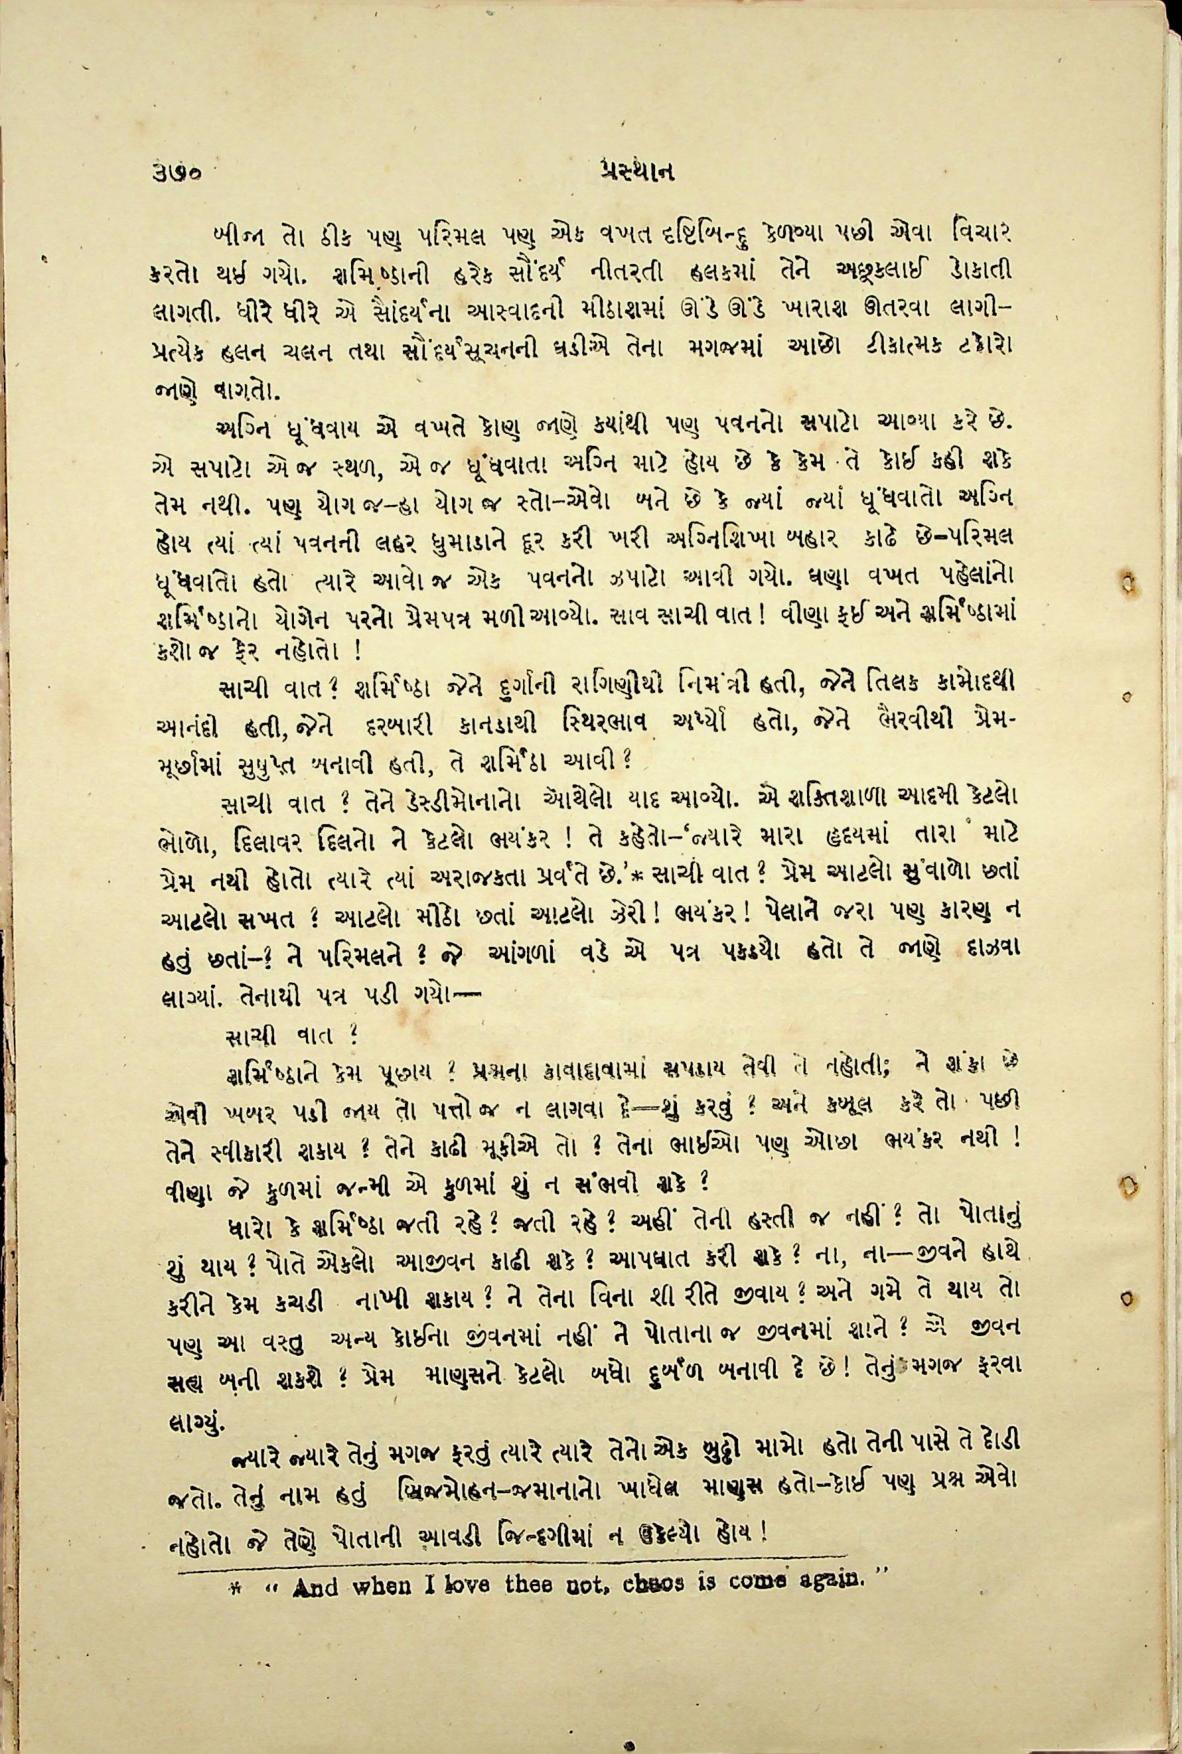 ૩૭૦ પ્રસ્થાન
બીજા તો ઠીક પણ પરિમલ પણ એક વખત દૃષ્ટિબિન્દુ કેળવ્યા પછી એવા વિચાર
કરતો થઈ ગયો. શર્મિષ્ઠાની હરેક સૌંદર્ય નીતરતી હલકમાં તેને અછૂકલાઈ ડોકાતી
લાગતી. ધીરે ધીરે એ સૌંદર્યના આસ્વાદની મીઠાશમાં ઊંડે ઊંડે ખારાશ ઊતરવા લાગી–
પ્રત્યેક હલન ચલન તથા સૌંદર્યસૂચનની ઘડીએ તેના મગજમાં આછો ટીકાત્મક ટહોરો
જાણે વાગતો.
અગ્નિ ધૂંધવાય એ વખતે કોણ જાણે કયાંથી પણ પવનનો સપાટો આવ્યા કરે છે.
એ સપાટો એ જ સ્થળ, એ જ ધૂંધવાતા અગ્નિ માટે હોય છે કે કેમ તે કોઈ કહી શકે
તેમ નથી. પણ યોગ જ–હા યોગ જ સ્તો–એવો બને છે કે જ્યાં જ્યાં ધૂંધવાતો અગ્નિ
હોય ત્યાં ત્યાં પવનની લહર ધુમાડાને દૂર કરી ખરી અગ્નિશિખા બહાર કાઢે છે–પરિમલ
ધૂંધવાતો હતો ત્યારે આવો જ એક પવનનો ઝપાટો આવી ગયો. ઘણા વખત પહેલાંનો
શર્મિષ્ઠાનો યોગેન પરનો પ્રેમપત્ર મળી આવ્યો. સાવ સાચી વાત! વીણા ફઈ અને શર્મિષ્ઠામાં
કશો જ ફેર નહોતો !
સાચી વાત? શર્મિષ્ઠા જેને દુર્ગાની રાગિણીથી નિમંત્રી હતી, જેને તિલક કામોદથી
આનંદી હતી, જેને દરબારી કાનડાથી સ્થિરભાવ અર્પ્યો હતો, જેને ભૈરવીથી પ્રેમ-
મૂર્છામાં સુષુપ્ત બનાવી હતી, તે શર્મિષ્ઠા આવી?
સાચી વાત ? તેને ડેસ્ડીમોનાનો ઑથેલો યાદ આવ્યો. એ શક્તિશાળી આદમી કેટલો
ભોળો, દિલાવર દિલનો ને કેટલો ભયંકર ! તે કહેતો–‘જ્યારે મારા હૃદયમાં તારા માટે
પ્રેમ નથી હોતો ત્યારે ત્યાં અરાજકતા પ્રવર્તે છે.’* સાચી વાત? પ્રેમ આટલો સુંવાળો છતાં
આટલો સખત ? આટલો મીઠો છતાં આટલો ઝેરી! ભયંકર! પેલાને જરા પણ કારણ ન
હતું છતાં–? ને પરિમલને ? જે આંગળાં વડે એ પત્ર પકડ્યો હતો તે જાણે દાઝવા
લાગ્યાં. તેનાથી પત્ર પડી ગયો—
સાચી વાત ?
શર્મિષ્ઠાને કેમ પૂછાય ? પ્રશ્નના કાવાદાવામાં સપડાય તેવી તે નહોતી; ને શંકા છે
એવી ખબર પડી જાય તો પત્તો જ ન લાગવા દે—શું કરવું ? અને કબૂલ કરે તો પછી
તેને સ્વીકારી શકાય ? તેને કાઢી મૂકીએ તો ? તેના ભાઈઓ પણ ઓછા ભયંકર નથી !
વીણા જે કુળમાં જન્મી એ કુળમાં શું ન સંભવી શકે ?
ધારો કે શર્મિષ્ઠા જતી રહે? જતી રહે? અહીં તેની હસ્તી જ નહીં? તો પોતાનું
શું થાય ? પોતે એકલો આજીવન કાઢી શકે? આપઘાત કરી શકે? ના, ના—જીવને હાથે
કરીને કેમ કચડી નાખી શકાય? ને તેના વિના શી રીતે જીવાય? અને ગમે તે થાય તો
પણ આ વસ્તુ અન્ય કોઈના જીવનમાં નહીં ને પોતાના જ જીવનમાં શાને? એ જીવન
સહ્ય બની શકશે? પ્રેમ માણસને કેટલો બધો દુર્બળ બનાવી દે છે! તેનું મગજ ફરવા
લાગ્યું.
જ્યારે જ્યારે તેનું મગજ ફરતું ત્યારે ત્યારે તેનો એક બુઢ્ઢો મામો હતો તેની પાસે તે દોડી
જતો. તેનું નામ હતું બ્રિજમોહન–જમાનાનો ખાધેલ માણસ હતો–કોઈ પણ પ્રશ્ન એવો
નહોતો જે તેણે પોતાની આવડી જિન્દગીમાં ન ઉકેલ્યો હોય!
* “ And when I love thee not, chaos is come again. ”